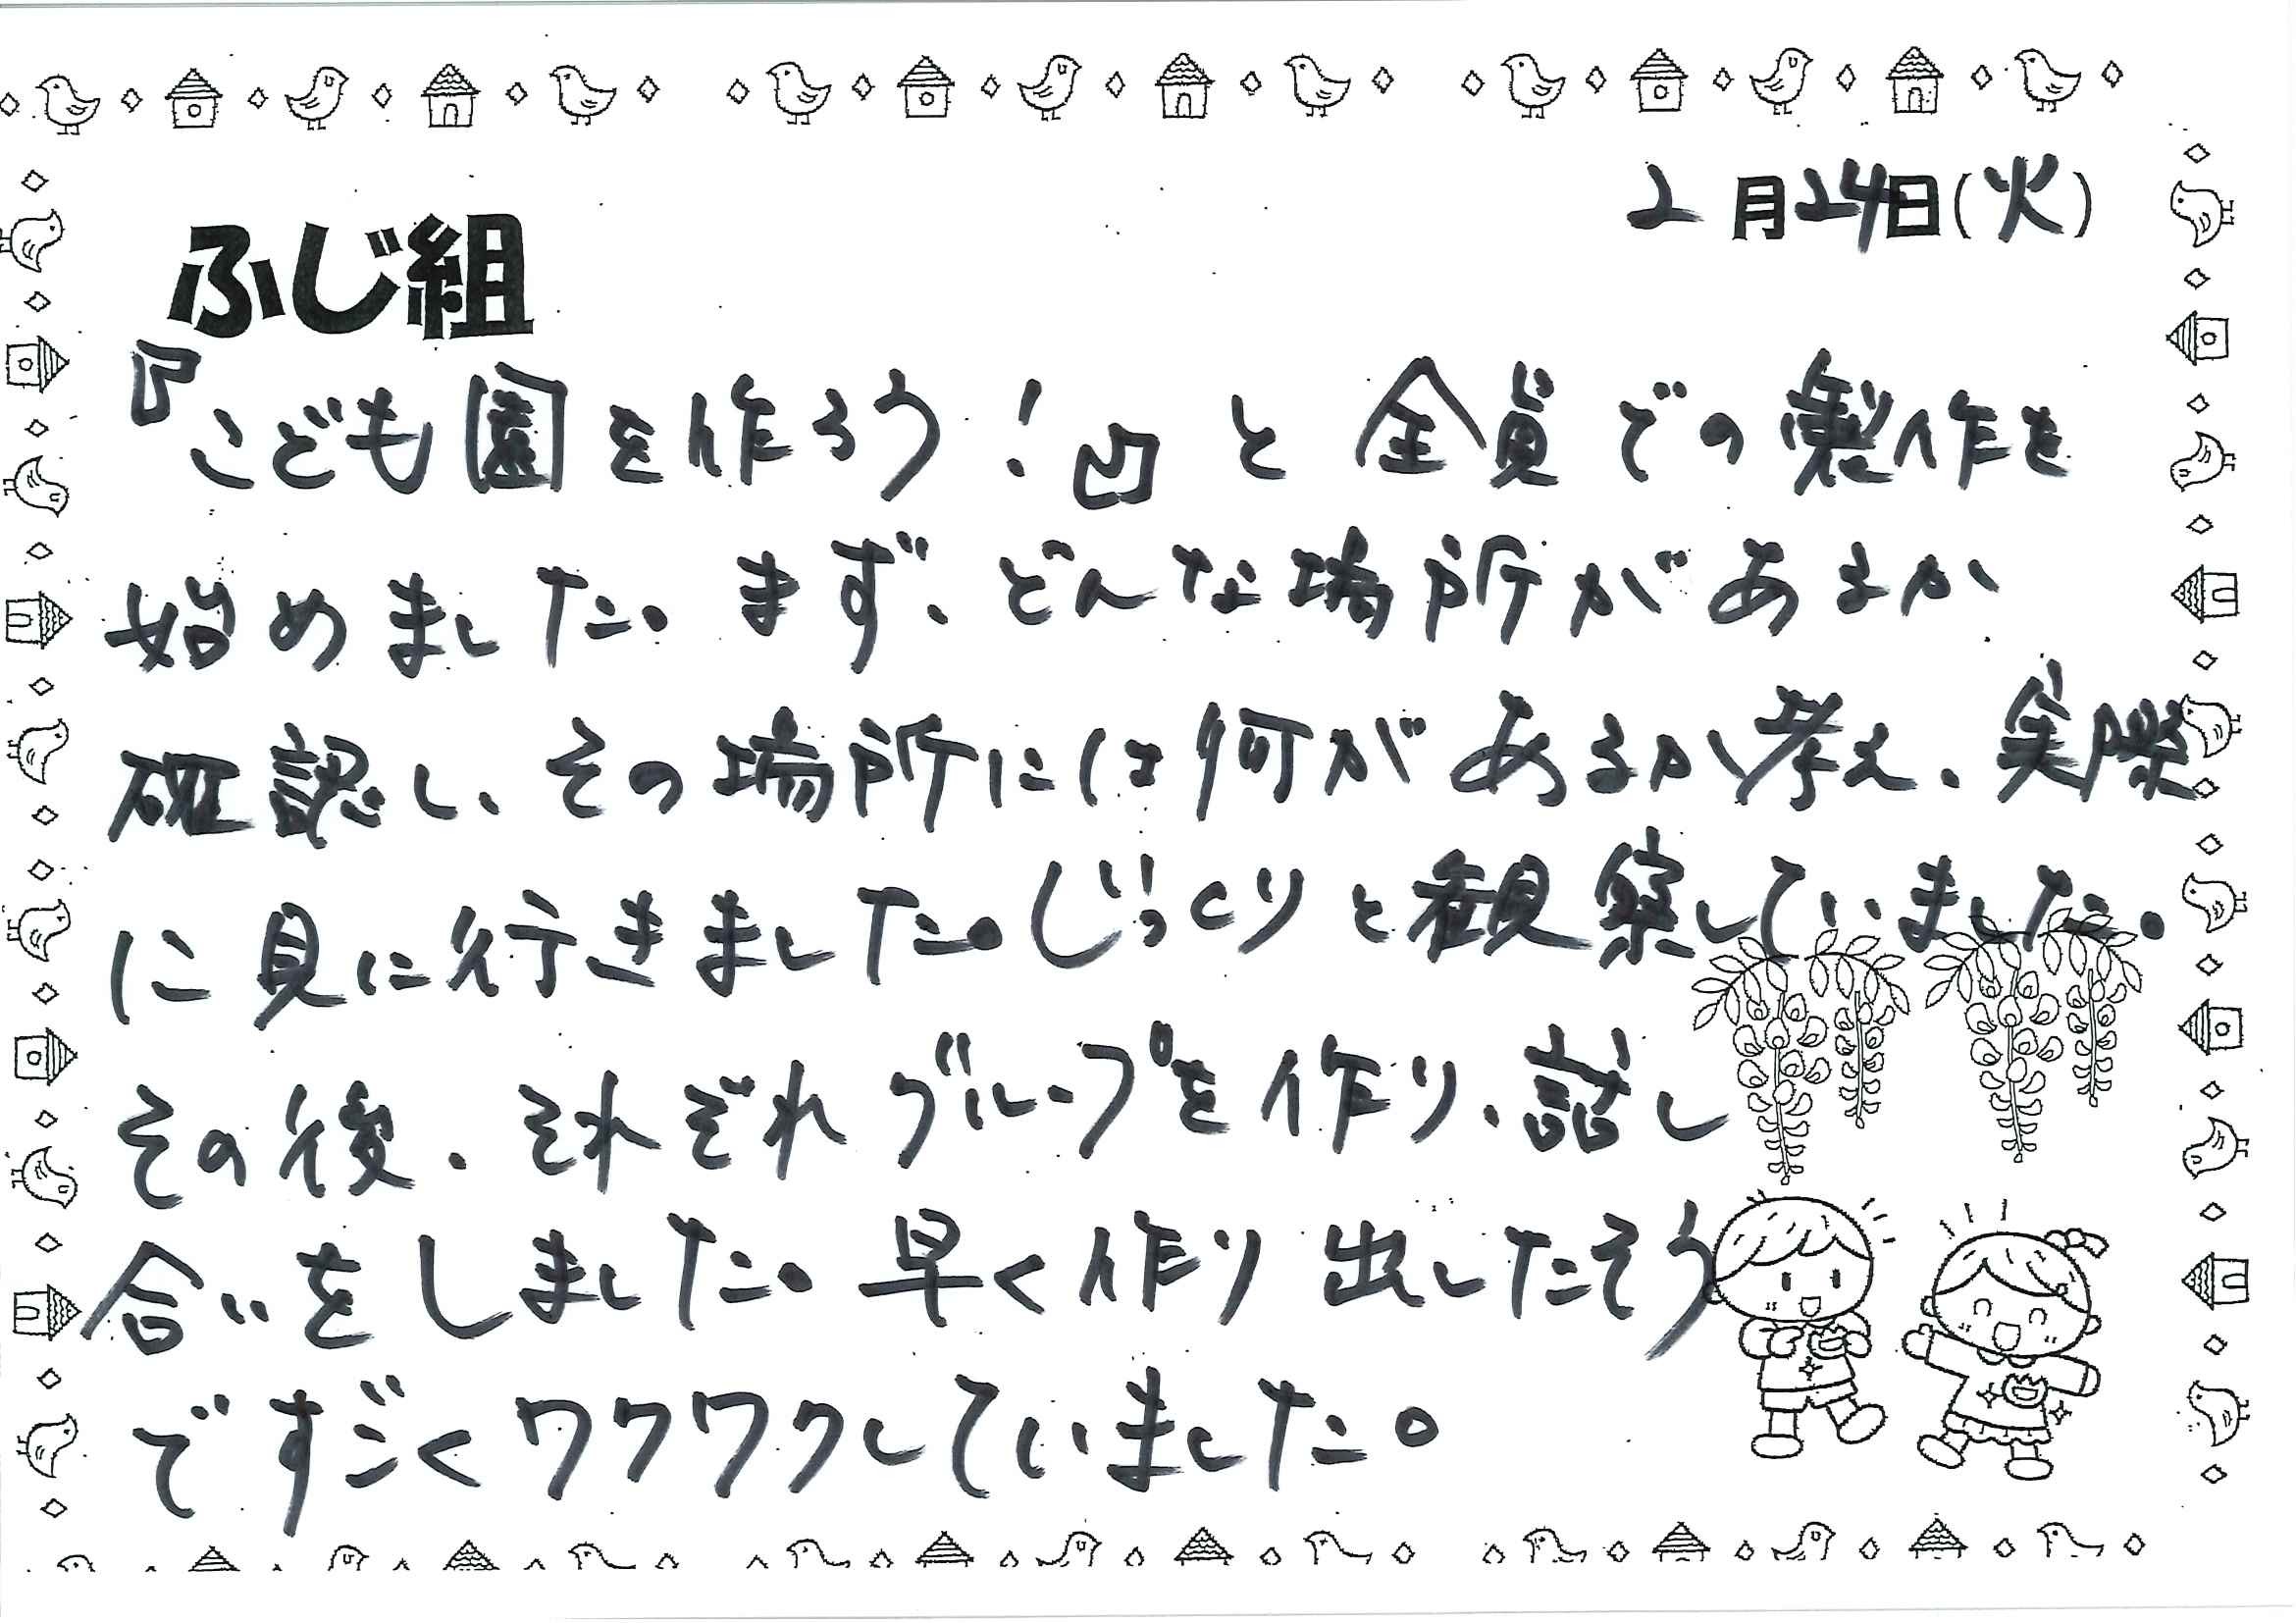 2月24日(火)
ふじ組
『こども園を作ろう！』と全員での製作を
始めました。まず、どんな場所があるか
確認し、その場所には何があるか考え、実際
に見に行きました。じっくりと観察していました。
その後、それぞれグループを作り、話し
合いをしました。早く作り出したそう
ですごくワクワクしていました。